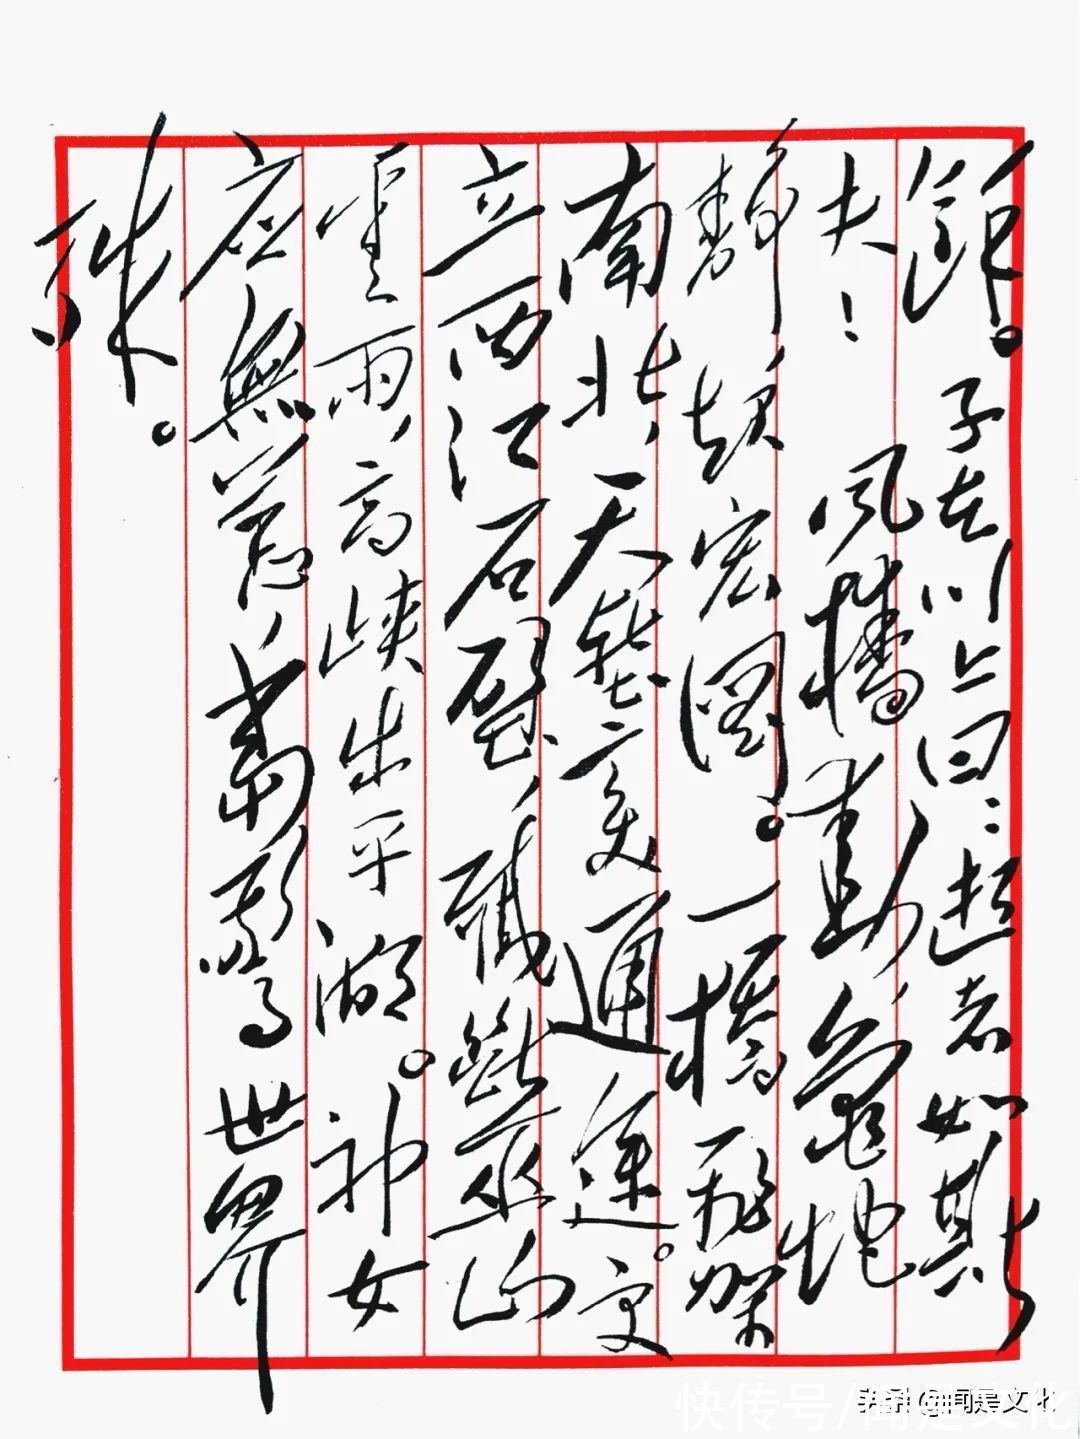 餘。子在川上曰:逝者如斯
夫!風檣動,龜蛇
靜起宏圖。一橋飛架
南北,天塹變通途。更
立西江石壁,截斷巫山
雲雨,高峡出平湖。神女
应無恙,當驚世界
殊。
快传号/闻是文化
头条 @闻是文化